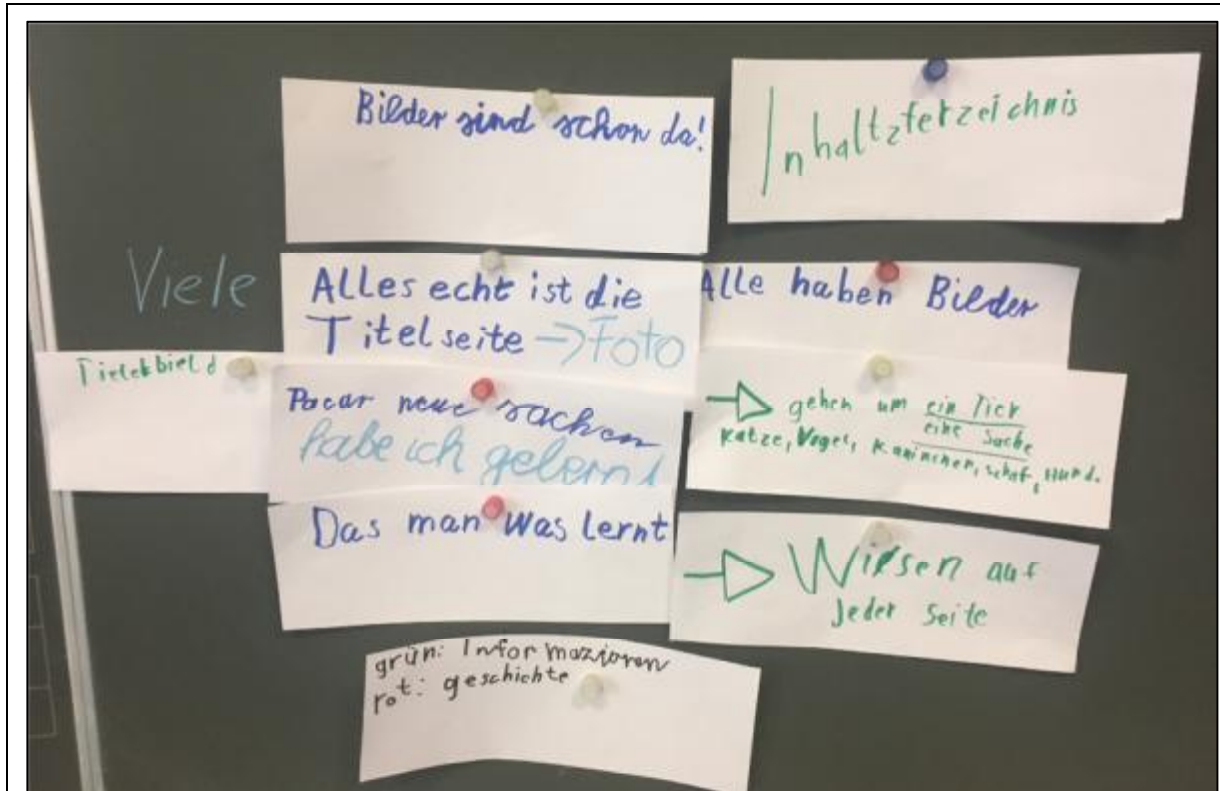 Bilder sind schon da!
Inhaltzferzeichnis
Viele
Alles echt ist die
Titelseite → Foto
Alle haben Bilder
Pacar neue sachen
habe ich gelernt
→ gehen um ein Tier
eine Sache
Katze, Vogel, Kaninchen, schaf, Hund.
Das man was lernt
→ Wissen auf
Jeder Seite
grün: Informazionen
rot: geschichte